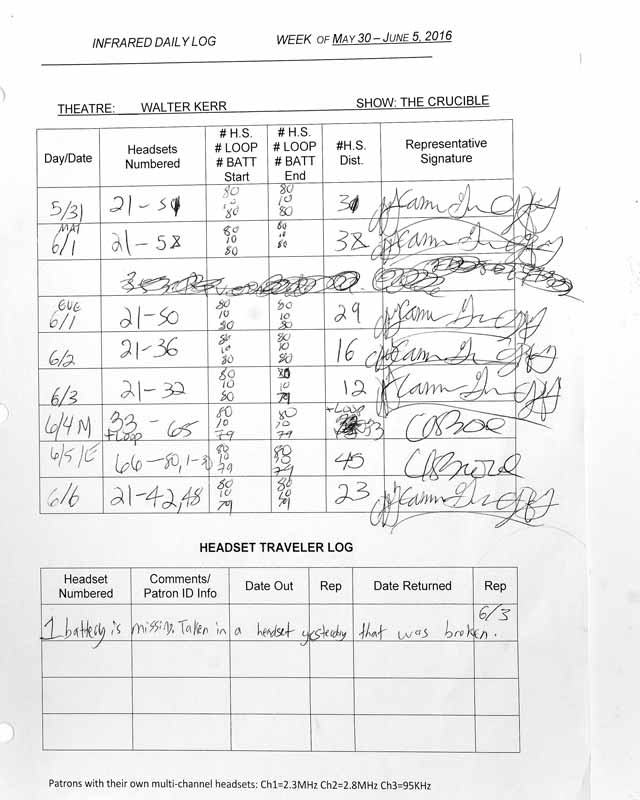 INFRARED DAILY LOG WEEK OF MAY 30 – JUNE 5, 2016
THEATRE: WALTER KERR SHOW: THE CRUCIBLE
Day/Date Headsets Numbered # H.S. # LOOP # BATT Start # H.S. # LOOP # BATT End #H.S. Dist. Representative Signature
5/31 21-51 80 10 80 80 10 80 31
MAT 6/1 21-58 80 10 80 80 10 80 38
EVE 6/1 21-50 80 10 80 80 10 80 29
6/2 21-36 80 10 80 80 10 80 16
6/3 21-32 80 10 80 80 10 79 12
6/4 M 33 - 65 +Loop 80 10 79 80 10 79 +Loop 33
6/5/E 66-80, 1-30 80 10 79 80 10 79 45
6/6 21-42,48 80 10 79 80 10 79 23
HEADSET TRAVELER LOG
Headset Numbered Comments/ Patron ID Info Date Out Rep Date Returned Rep
6/3
1 battery is missing. Taken in a headset yesterday that was broken.
Patrons with their own multi-channel headsets: Ch1=2.3MHz Ch2=2.8MHz Ch3=95KHz